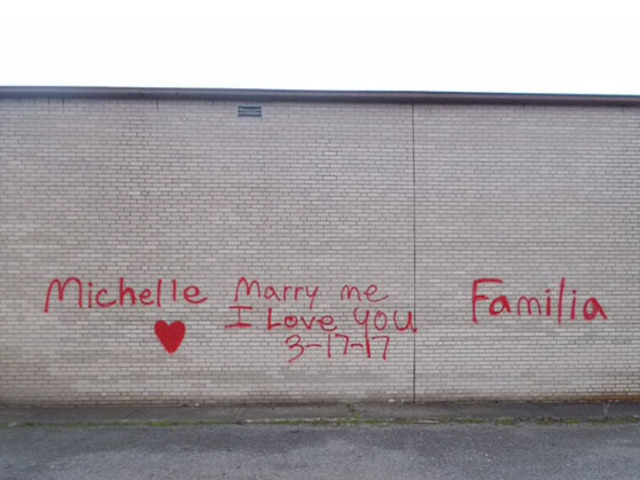 Michelle Marry me Familia
I Love you
3-17-17